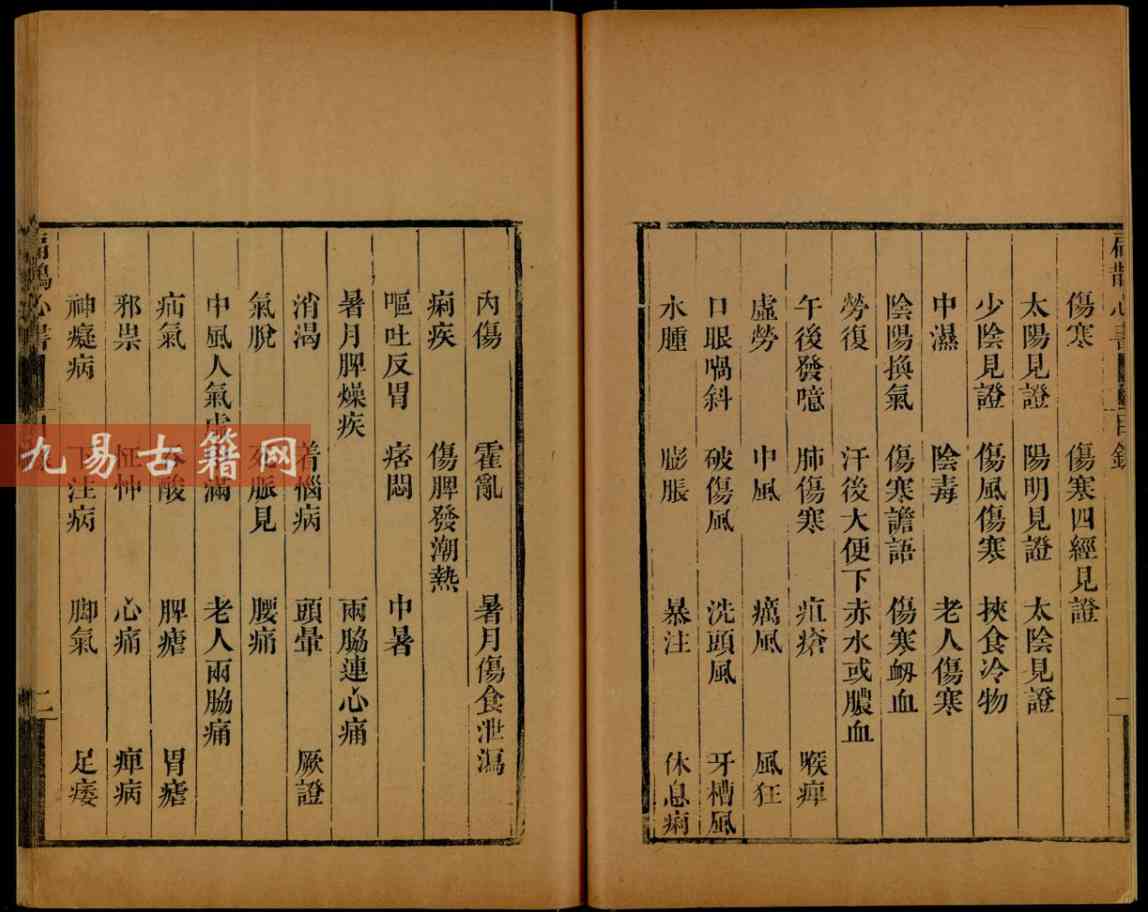 傷寒 傷寒四經見證
太陽見證 陽明見證 太陰見證
少陰見證 傷風傷寒 挾食冷物
中濕 陰毒 老人傷寒
陰陽換氣 傷寒譫語 傷寒衂血
勞復 汗後大便下赤水或膿血
午後發噫 肺傷寒 疽瘡 喉痺
虛勞 中風 癘風 風狂
口眼喎斜 破傷風 洗頭風 牙槽風
水腫 膨脹 暴注 休息痢
內傷 霍亂 暑月傷食泄瀉
痢疾 傷脾發潮熱
嘔吐反胃 痞悶 中暑
暑月脾燥疾 兩脇連心痛
消渴 着惱病 頭暈 厥證
氣脫 死脈見 腰痛
中風人氣虛 滿 老人兩脇痛
疝氣 吞酸 脾瘧 胃瘧
邪祟 怔忡 心痛 痺病
神癡病 下注病 脚氣 足痿
二
九易古籍网